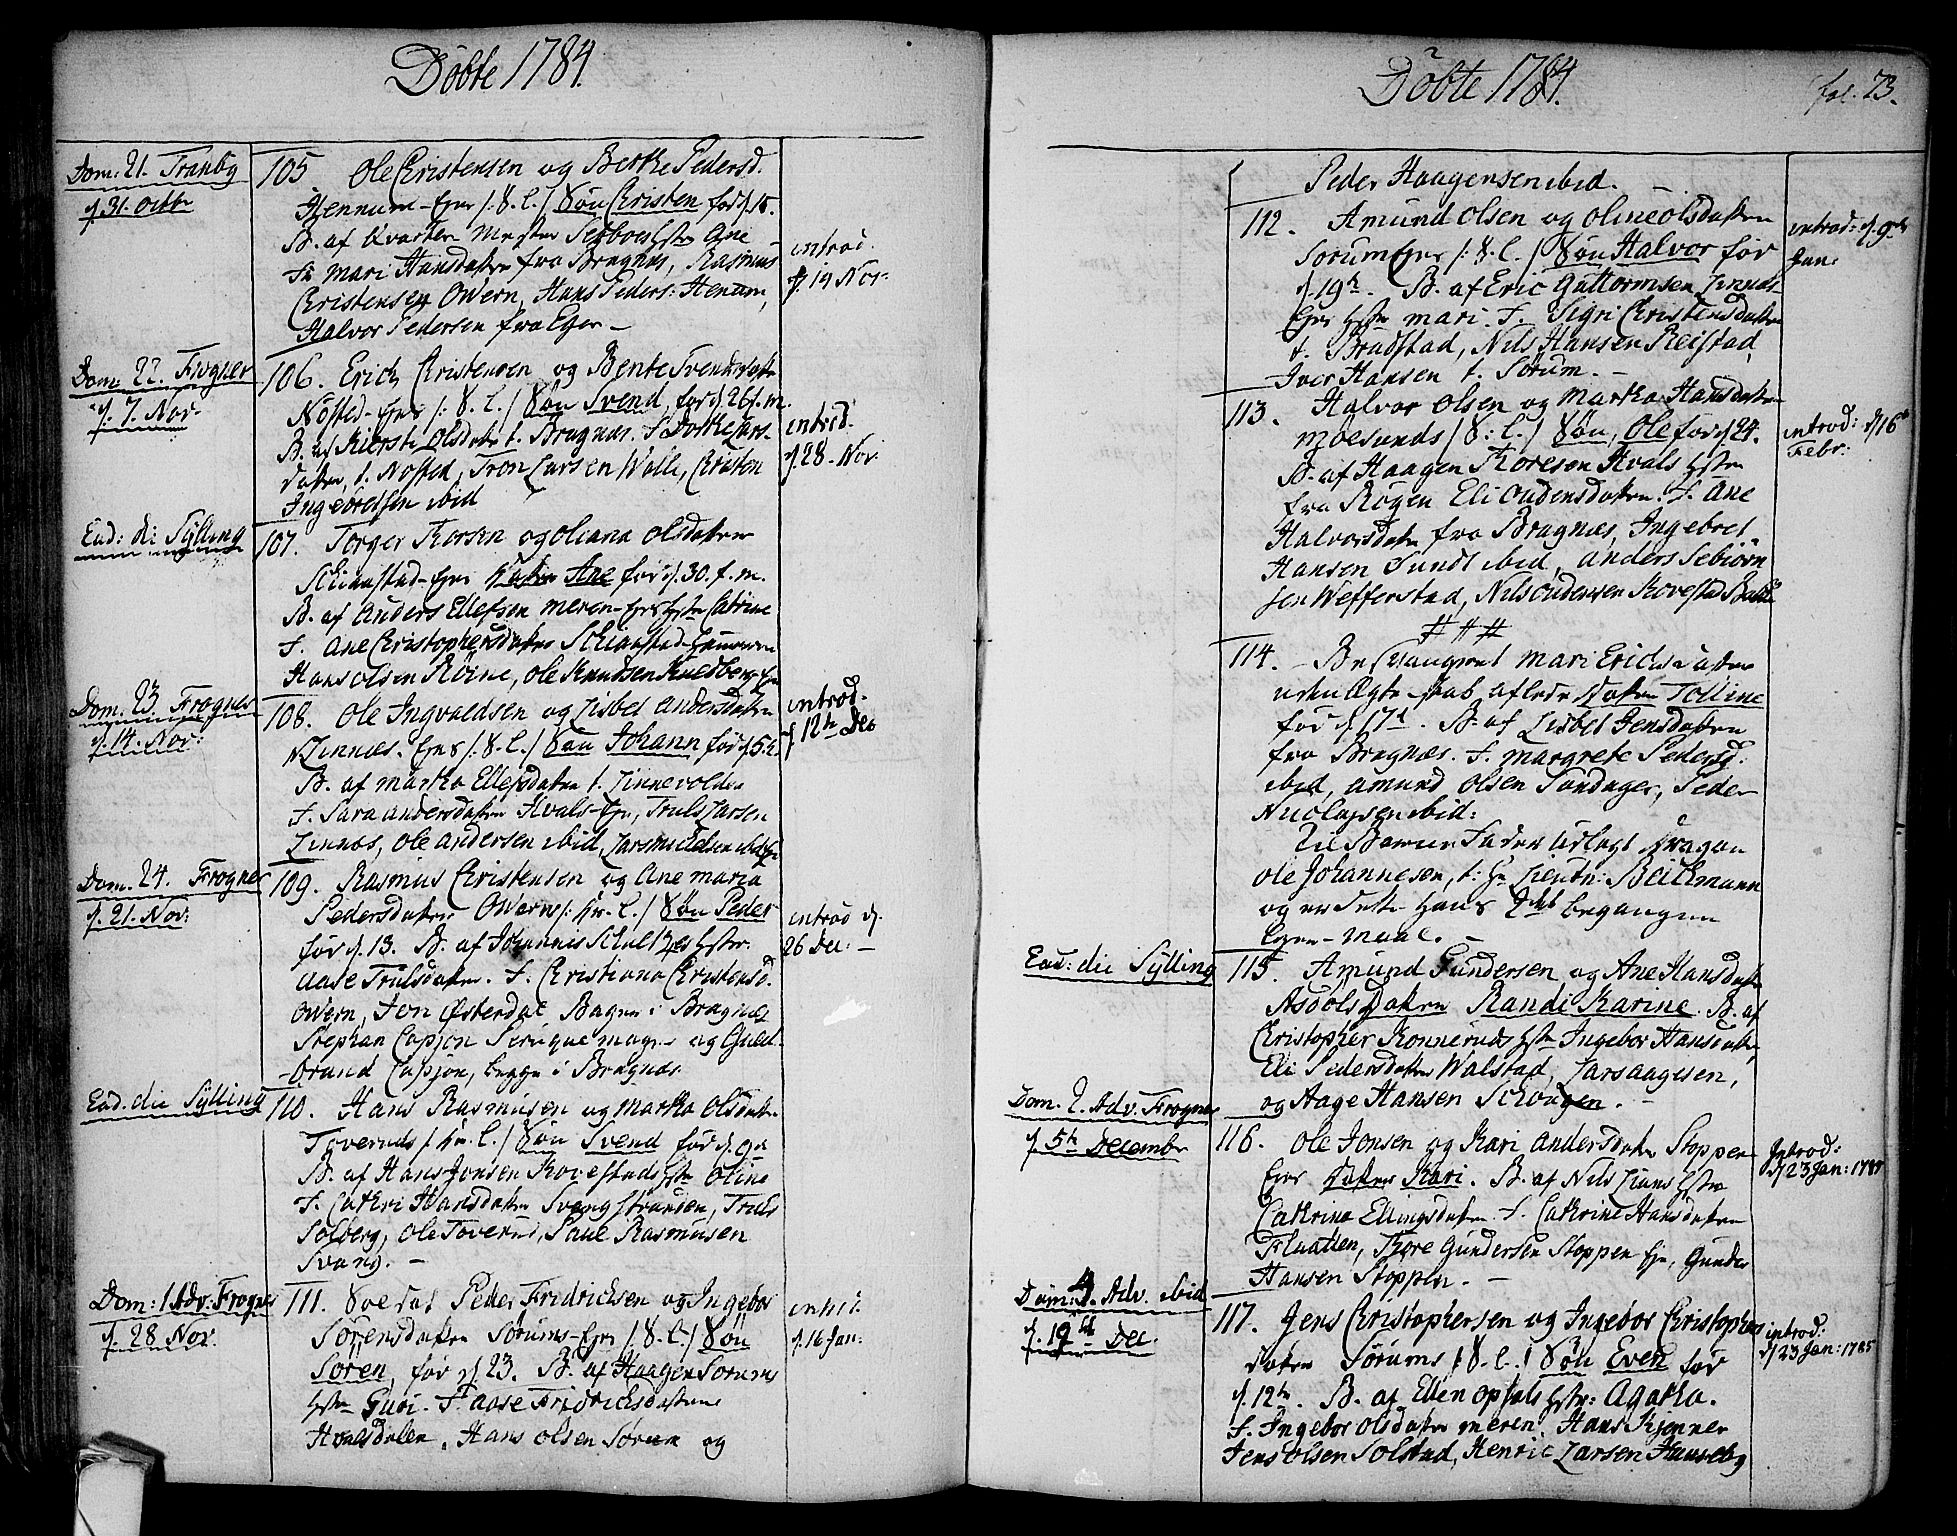 Döbte 1784.
Dom: 21. Tranby
d. 31. Octbr
105 Ole Christensen og Berthe Pedersd.
Hennum-Eyer /: S. L. / Søn Christen før d. 15.
B. af Kvarter Mester Seeboes hstr Ane
F. Mari Hansdatter fra Bragnæs, Rasmus
Christensen Owern, Hans Peders: Henum,
Halvor Pedersen fra Eger -
introd.
d. 19 Nov.
Dom. 22. Frogner
d. 7. Nov.
106. Erich Christensen og Bente Svendsdatter
Nøsted-Eyer /: S. L. / Søn Svend, før d. 26 f. m.
B. af Kierste Olsdatr t. Bragnæs. F. Dorthe Lars-
datter, t. Nøsted, Tron Larsen Walle, Christen
Ingebretsen ibid
introd.
d. 28. Nov
Ead: di Sylling
107. Torger Thorsen og Oleana Olsdatter
Schinstad-Eyer Datter Ane før d. 30. f. m.
B. af Anders Ellefsen Meren-Eyes hstr Catrine
F. Ane Christophersdatter Schinstad-
Hans Olsen Röine, Ole Knudsen
Dom. 23. Frogner
d. 14. Nov:
108. Ole Ingvaldsen og Lisbet Andersdatter
Linnæs. Eyer /: S. L. / Søn Johann før d. 5te
B. af Martha Ellefsdatter t. Linnevolden
F. Sara Andersdatter Hvals-Eye, Truls Larsen
Linnæs, Ole Andersen ibid, Lars
introd.
d. 12te Dec
Dom. 24. Frogner
d. 21. Nov:
109. Rasmus Christensen og Ane Maria
Pedersdatter Owern /: Hr. L. / Søn Peder
før d. 13. B. af Johannis Schultzes hstr.
Aase Trulsdatter. F. Christiana Christensd.
Owern, Jon Østerdal Bager i Bragnæs
Stephan Capjon Peruquemager og Guld-
brand Capjon, begge i Bragnæs
introd d.
26 Dec: -
Ead. die Sylling
110. Hans Rasmusen og Martha Olsdatter
Toveruds /: Hr. L. / Søn Svend før d. 9de
B. af Hans Jonsen Kovestads hstr Oline
F. Cathri Hansdatter Svangstranden, Truls
Solberg, Ole Toverud, Paul Rasmusen
Svang. -
Dom: 1 Adv: Frogner
d. 28 Nov.
111. Soldat Peder Fridrichsen og Ingebor
Sørensdatter Sørums-Eyer /: S. L. / Søn
Sören, før d. 23. B. af Haagen Sorums
hstr Guri. F. Aase Fridrichsdatter
Hvalsdalen. Hans Olsen Sørum og
introd.
d. 16 Jan:
Döbte 1784.
fol. 73.
Peder Haagensen ibid. -
112. Amund Olsen og Oline Olsdatter
Sorum Eyer /: S. L. / Søn Halvor før
d. 19de. B. af Eric Guttormsen
Eyer hstr Mari. F. Sigri Christensdatter
t. Bradstad, Nils Hansen Reistad,
Iver Hansen t. Sørum. -
introd: d. 9de
Jan:
113. Halvor Olsen og Martha Hansdatter
Moesunds /: S: L. / Søn, Ole før d. 24.
B. af Haagen Thoresen Hvals hstr
fra Røgen Eli Oudensdatter. F. Ane
Halvorsdatr fra Bragnæs, Ingebret
Hansen Sundt ibid, Anders Sebiørn-
sen Wefferstad, Nils Oudensen Kovestad
introd: d. 16de
Febr:
# # #
114. - Besvangret Mari Erichsdatter
uden Ægteskab aflede Datter Tolline
før d. 17d. B. af Lisbet Jensdatter
fra Bragnæs. F. Margrete Pedersd.
ibid, Amund Olsen Sondager, Peder
Nicolaysen ibid:
Til Barnefader Udlagt Dragon
Ole Johannesen, t: Hr Lieutn: Bechmann
og er dette hans 2det begangne
Leyer-maal. -
Ead: die Sylling
115. Amund Gundersen og Ane Hansdatr
Asdöls Datter Randi Karine. B. af
Christopher Konneruds hstr Ingebor Hansdatter,
Eli Pedersdatter Walstad, Lars Aagesen,
og Aage Hansen Schougen. -
Dom. 2. Adv. Frogner
d. 5te Decembr
116. Ole Jonsen og Kari Andersdatter Stoppen
Eyer Datter Kari. B. af Nils Lians hstr
Cathrina Ellingsdatter. F. Cathrine Hansdatter
Flaatten, Thore Gundersen Stoppen Eye, Gunder
Hansen Stoppen. -
Introd:
d. 23 Jan: 1785
Dom: 4. Adv. ibid
d. 19de Dec.
117. Jens Christophersen og Ingebor Christophers
datter Sørums /: S. L. / Søn Even før
d. 12te. B. af Ellen Opsals hstr: Agatha.
F. Ingebor Olsdatter Meren. Hans Kjonner
Jens Olsen Solstad, Henric Larsen Hanseby
introd:
d. 23 Jan: 1785